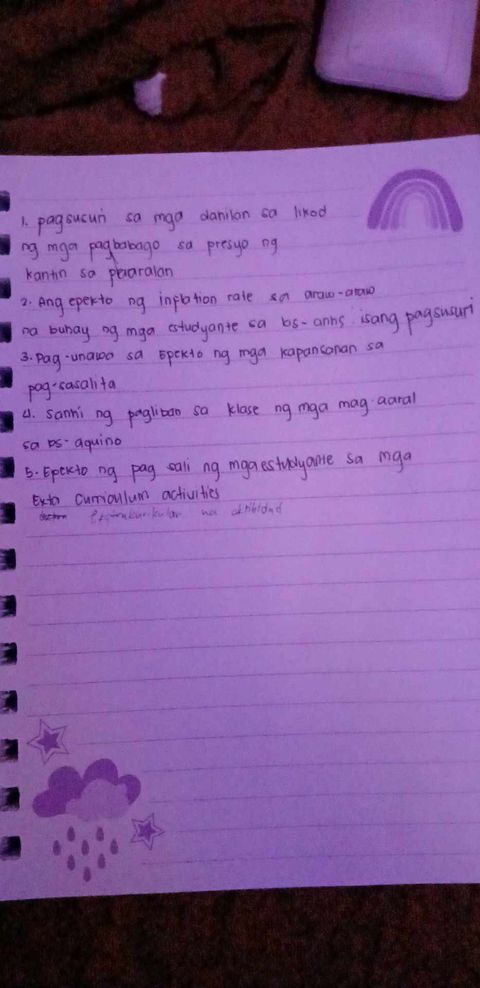 1. pagsusuri sa mga dahilan sa likod
ng mga pagbabago sa presyo ng
kantin sa paaralan
2. Ang epekto ng inflation rate sa araw-araw
na buhay ng mga estudyante sa bs-anhs isang pagsusuri
3. Pag-unawa sa Epekto ng mga kapansanan sa
pag-sasalita
4. Sanhi ng pagliban sa klase ng mga mag-aaral
sa bs-aquino
5. Epekto ng pag sali ng mga estudyante sa mga
Exta Curriculum activities
na aktibidad